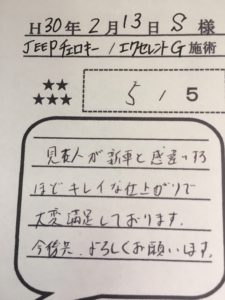 H30年2月13日 S 様
JEEPチェロキー / エクセレントG 施術
★★
★★★
5 / 5
見た人が新車と感違いする
ほどキレイな仕上がりで
大変満足しております.
今後共、よろしくお願います.